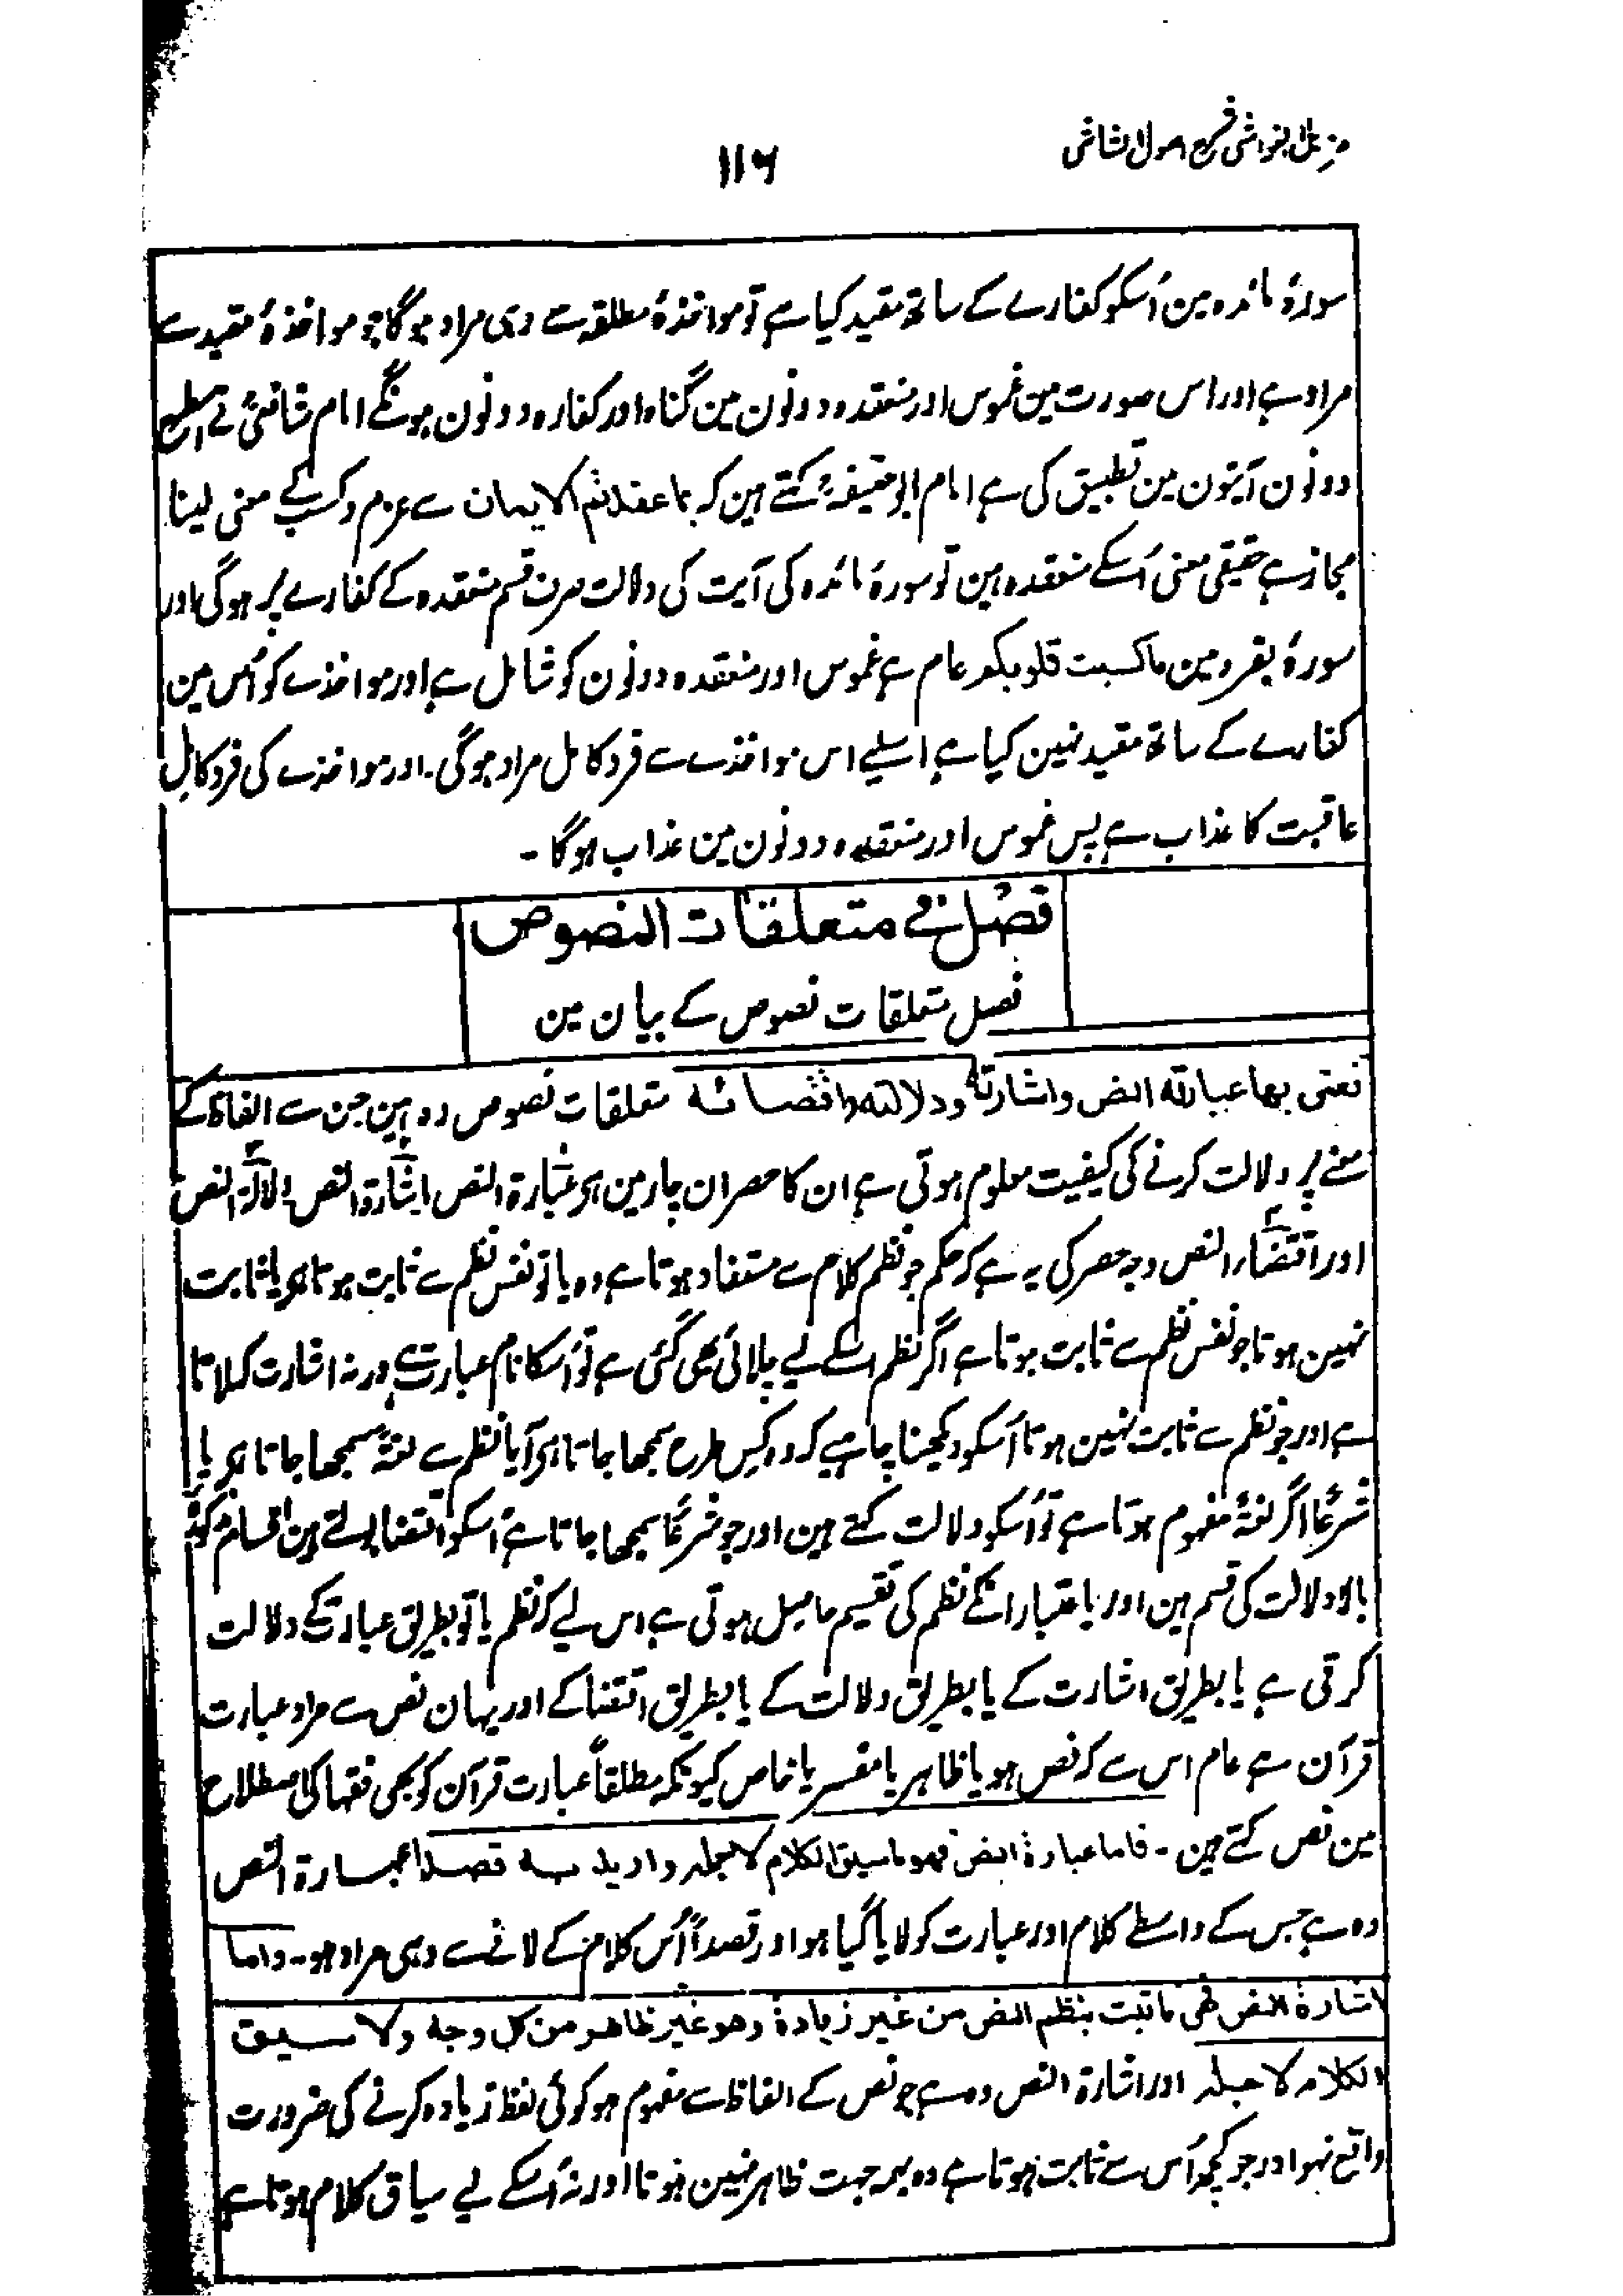 مزیل الغواشی شرح اصول الشاشی
۱۱۶
سورۂ مائدہ مین اُسکو کفارے کے ساتھ مقید کیا ہے تو مواخذۂ مطلقہ سے وہی مراد ہوگا جو مواخذۂ مقید سے
مراد ہے اور اس صورت مین غموس اور منعقدہ دونون مین گناہ اور کفارہ دونون ہونگے امام شافعیؒ نے اسطرح
دونون آیتون مین تطبیق کی ہے امام ابوحنیفہؒ کہتے ہین کہ بما عقدتم الایمان سے عزم و کسب کے معنی لینا
مجاز ہے حقیقی معنی اُسکے منعقدہ ہین تو سورۂ مائدہ کی آیت کی دلالت صرف قسم منعقدہ کے کفارے پر ہوگی اور
سورۂ بقرہ مین ماکسبت قلوبکم عام ہے غموس اور منعقدہ دونون کو شامل ہے اور مواخذے کو اُس مین
کفارے کے ساتھ مقید نہین کیا ہے اسلیے اس مواخذے سے فرد کامل مراد ہوگی۔ اور مواخذے کی فرد کامل
عاقبت کا عذاب ہے پس غموس اور منعقدہ دونون مین عذاب ہوگا۔
فصل فی متعلقات النصوص
فصل متعلقات نصوص کے بیان مین
نعنی بھا عبارۃ النص واشارتہ ودلالتہ واقتضائہ متعلقات نصوص وہ ہین جن سے الفاظ کے
معنے پر دلالت کرنے کی کیفیت معلوم ہوتی ہے ان کا حصر ان چار مین ہی عبارۃ النص اشارۃ النص دلالۃ النص
اور اقتضاء النص وجہ حصر کی یہ ہے کہ حکم جو نظم کلام سے مستفاد ہوتا ہے وہ یا تو نفس نظم سے ثابت ہوتا ہی یا ثابت
نہین ہوتا جو نفس نظم سے ثابت ہوتا ہے اگر نظم اسکے لیے چلائی بھی گئی ہے تو اُسکا نام عبارت ہے ورنہ اشارت کہلاتا
ہے اور جو نظم سے ثابت نہین ہوتا اُسکو دیکھنا چاہیے کہ وہ کس طرح سمجھا جاتا ہی آیا نظم سے لغۃً سمجھا جاتا ہی یا
شرعًا اگر لغۃً مفہوم ہوتا ہے تو اُسکو دلالت کہتے ہین اور جو شرعًا سمجھا جاتا ہے اُسکو اقتضا بولتے ہین اقسام مذکورۂ
بالا دلالت کی قسم ہین اور باعتبار انکے نظم کی تقسیم حاصل ہوتی ہے اس لیے کہ نظم یا تو بطریق عبارت کے دلالت
کرتی ہے یا بطریق اشارت کے یا بطریق دلالت کے یا بطریق اقتضا کے اور یہان نص سے مراد عبارت
قرآن ہے عام اس سے کہ نص ہو یا ظاہر یا مفسر یا خاص کیونکہ مطلقاً عبارت قرآن کو بھی فقہا کی اصطلاح
مین نص کہتے ہین۔ فاما عبارۃ النص فھو ماسیق الکلام لاجلہ وارید بہ قصداً عبارۃ النص
وہ ہے جس کے واسطے کلام اور عبارت کو لایا گیا ہو اور قصداً اُس کلام کے لانے سے وہی مراد ہو۔ واما
اشارۃ النص فھی ماثبت بنظم النص من غیر زیادۃ وھو غیر ظاھر من کل وجہ ولا سیق
الکلام لاجلہ اور اشارۃ النص وہ ہے جو نص کے الفاظ سے مفہوم ہو کوئی لفظ زیادہ کرنے کی ضرورت
واقع نہو اور جو کچھ اُس سے ثابت ہوتا ہے وہ بہمہ جہت ظاہر نہین ہوتا اور نہ اُسکے لیے سیاق کلام ہوتا ہے